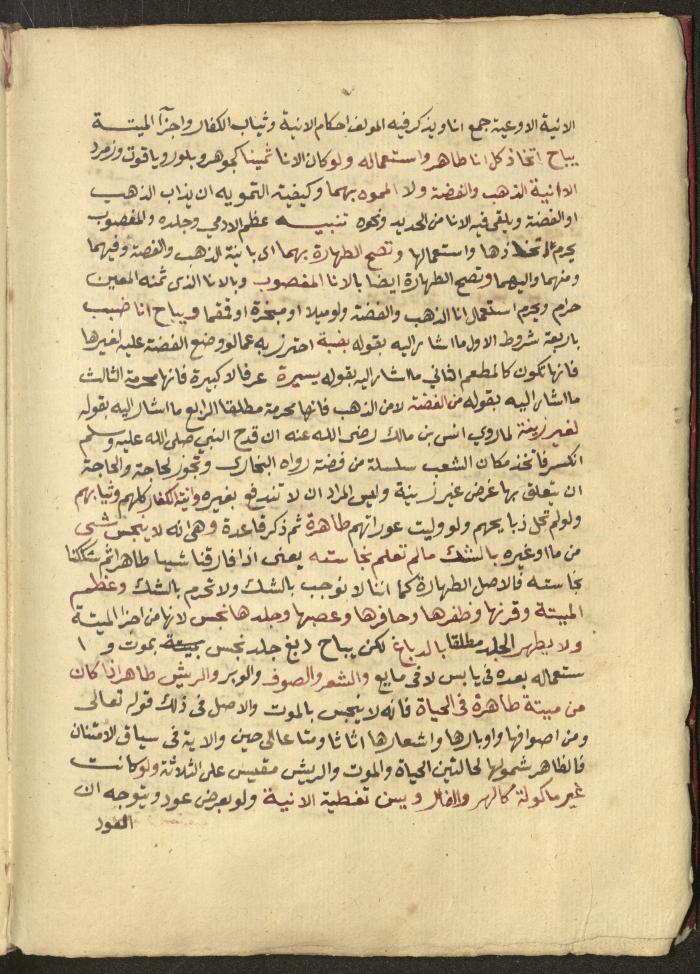 الانية الاوعية جمع انا ويذكر فيه المولف احكام الانية وثياب الكفار واجزآ الميتة
يباح اتخاذ كل انا طاهر واستعماله ولو كان الانا ثمينا كجوهر وبلور وياقوت وزمرد
الا انية الذهب والفضة ولا المموه بهما وكيفية التمويه ان يذاب الذهب
او الفضة ويلقى فيه الانا من الحديد ونحوه تنبيـه عظم الادمي وجلده والمغصوب
يحرم اتخاذها واستعمالها وتصح الطهارة بهما اى بانية الذهب والفضة وفيهما
ومنهما واليهما وتصح الطهارة ايضا بالانا المغصوب وبالانا الذى ثمنه المعين
حرام ويحرم استعمال انا الذهب والفضة ولو ميلا او مبخرة او قمقما ويباح انا ضبب
باربعة شروط الاول ما اشار اليه بقوله بضبة احترز به عما لو وضع الفضة عليه لغيرها
فانها تكون كالمطعم الثاني ما اشار اليه بقوله يسيرة عرفا لا كبيرة فانها محرمة الثالث
ما اشار اليه بقوله من الفضة لا من الذهب فانها محرمة مطلقا الرابع ما اشار اليه بقوله
لغير زينة لما روي انس بن مالك رضى الله عنه ان قدح النبي صلى الله عليه وسلم
انكسر فاتخذ مكان الشعب سلسلة من فضة رواه البخارى وتجوز لحاجة والحاجة
ان يتعلق بها غرض غير زينة وليس المراد ان لا تندفع بغيره وانية الكفار كلهم وثيابهم
ولو لم تحل ذبايحهم ولو وليت عوراتهم طاهرة ثم ذكر قاعدة وهى انه لا ينجس شى
من ما او غيره بالشك ما لم تعلم نجاسته يعنى اذا فارقنا شيا طاهرا ثم شككنا
نجاسته فالاصل الطهارة كما اننا لا نوجب بالشك ولا نحرم بالشك وعظم
الميتة وقرنها وظفرها وحافرها وعصبها وجلدها نجس لانها من اجزا الميتة
ولا يطهر الجلد مطلقا بالدباغ لكن يباح دبغ جلد نجس بميتة بموت و ا
ستعماله بعده فى يابس لا فى مايع والشعر والصوف والوبر والريش طاهر اذا كان
من ميتة طاهرة فى الحياة فانه لا ينجس بالموت والاصل فى ذلك قوله تعالى
ومن اصوافها واوبارها واشعارها اثاثا ومتاعا الى حين والاية فى سياق الامتنان
فالظاهر شمولها لحالتين الحياة والموت والريش مقيس على الثلاثة ولو كانت
غير ماكولة كالهر والفار ويسن تغطية الانية ولو بعرض عود ويتوجه ان
العود